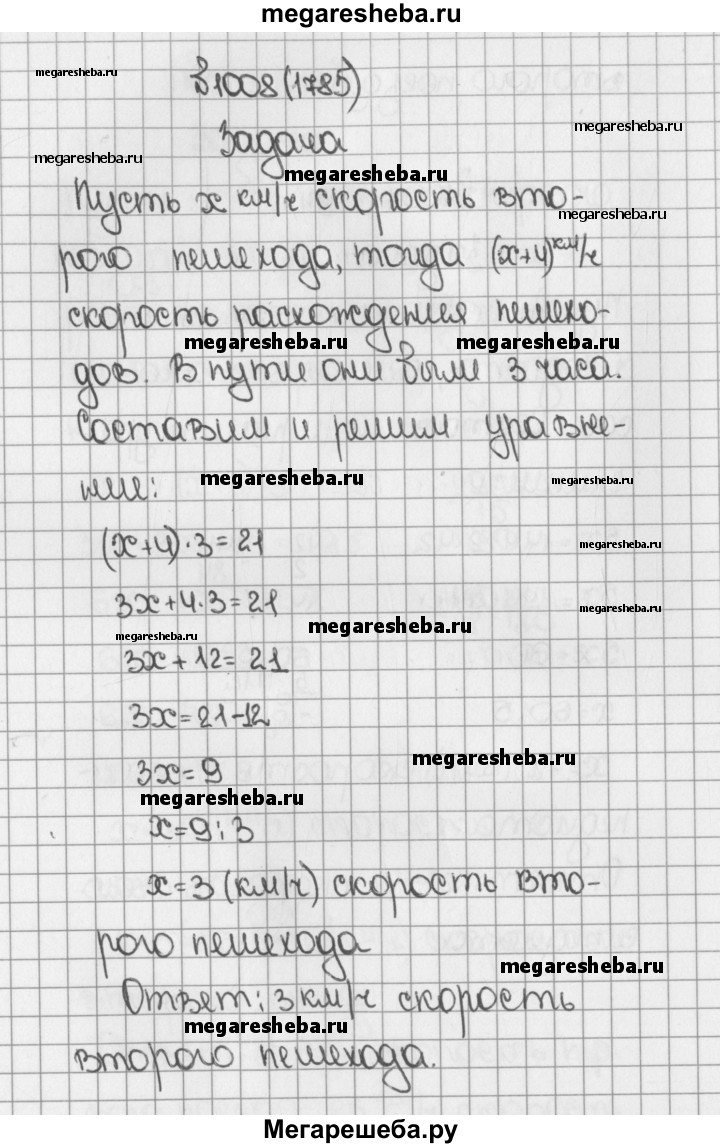 megaresheba.ru
megaresheba.ru
№1008(1785)
megaresheba.ru
Задача
megaresheba.ru
megaresheba.ru
Пусть x км/ч скорость вто-
megaresheba.ru
рого пешехода, тогда (x+4) км/ч
скорость расхождения пешехо-
megaresheba.ru megaresheba.ru
дов. В пути они были 3 часа.
Составим и решим уравне-
megaresheba.ru
ние:
(x+4)·3=21
megaresheba.ru
3x+4·3=21
megaresheba.ru
megaresheba.ru
3x+12=21
3x=21-12
megaresheba.ru
3x=9
megaresheba.ru
x=9:3
x=3 (км/ч) скорость вто-
рого пешехода
megaresheba.ru
Ответ: 3 км/ч скорость
megaresheba.ru
второго пешехода.
Мегарешеба.ру